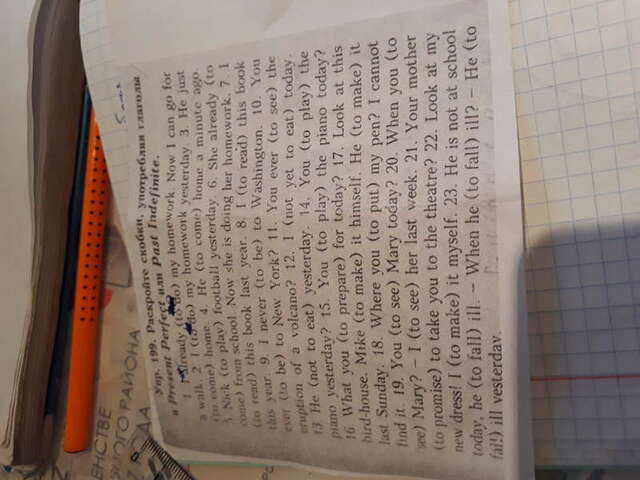 ЕНСТВЕ
ОГО РАЙОНА
ДА
5
Упр. 199. Раскройте скобки, употребляя глаголы
в Present Perfect или Past Indefinite.
1. I already (to do) my homework. Now I can go for
a walk. 2 I (to do) my homework yesterday. 3. He just
(to come) home. 4. He (to come) home a minute ago.
5. Nick (to play) football yesterday. 6. She already (to
come) from school. Now she is doing her homework. 7. I
(to read) this book last year. 8. I (to read) this book
this year. 9. I never (to be) to Washington. 10. You
ever (to be) to New York? 11. You ever (to see) the
eruption of a volcano? 12. I (not yet to eat) today.
13 He (not to eat) yesterday. 14. You (to play) the
piano yesterday? 15. You (to play) the piano today?
16 What you (to prepare) for today? 17. Look at this
bird-house. Mike (to make) it himself. He (to make) it
last Sunday. 18. Where you (to put) my pen? I cannot
find it. 19. You (to see) Mary today? 20. When you (to
see) Mary? – I (to see) her last week. 21. Your mother
(to promise) to take you to the theatre? 22. Look at my
new dress! I (to make) it myself. 23. He is not at school
today, he (to fall) ill. – When he (to fall) ill? – He (to
fall) ill yesterday.